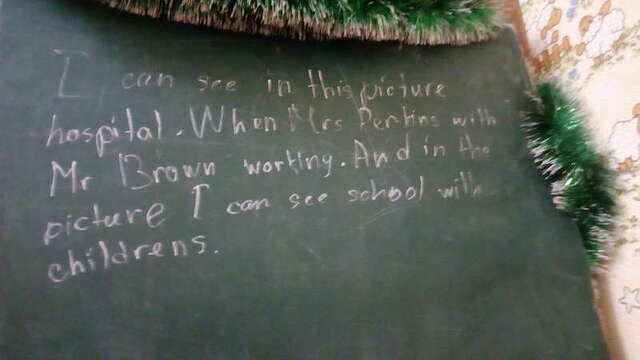 I can see in this picture
hospital. When Mrs Perkins with
Mr Brown working. And in the
picture I can see school with
childrens.